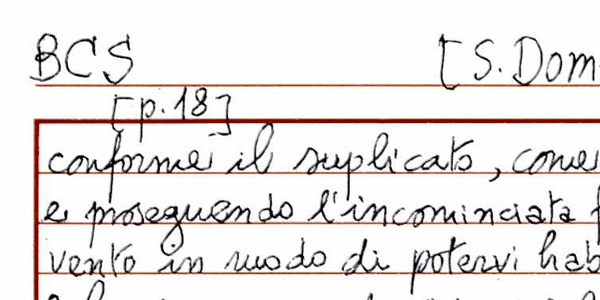 BCS [S. Dom
[p. 18]
conforme il suplicato, come
e proseguendo l'incominciata f
vento in modo di potervi hab